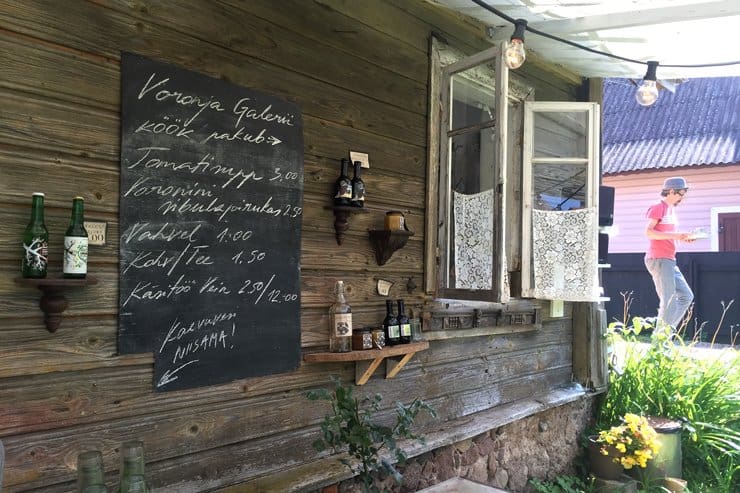 Voronja Galerii
KÖÖK pakub →
Tomatisupp 3.00
Voronini
sibulapirukas 2.50
Vahvel 1.00
Kohv/Tee 1.50
Käsitöö Vein 2.50/12.00
NIISAMA!